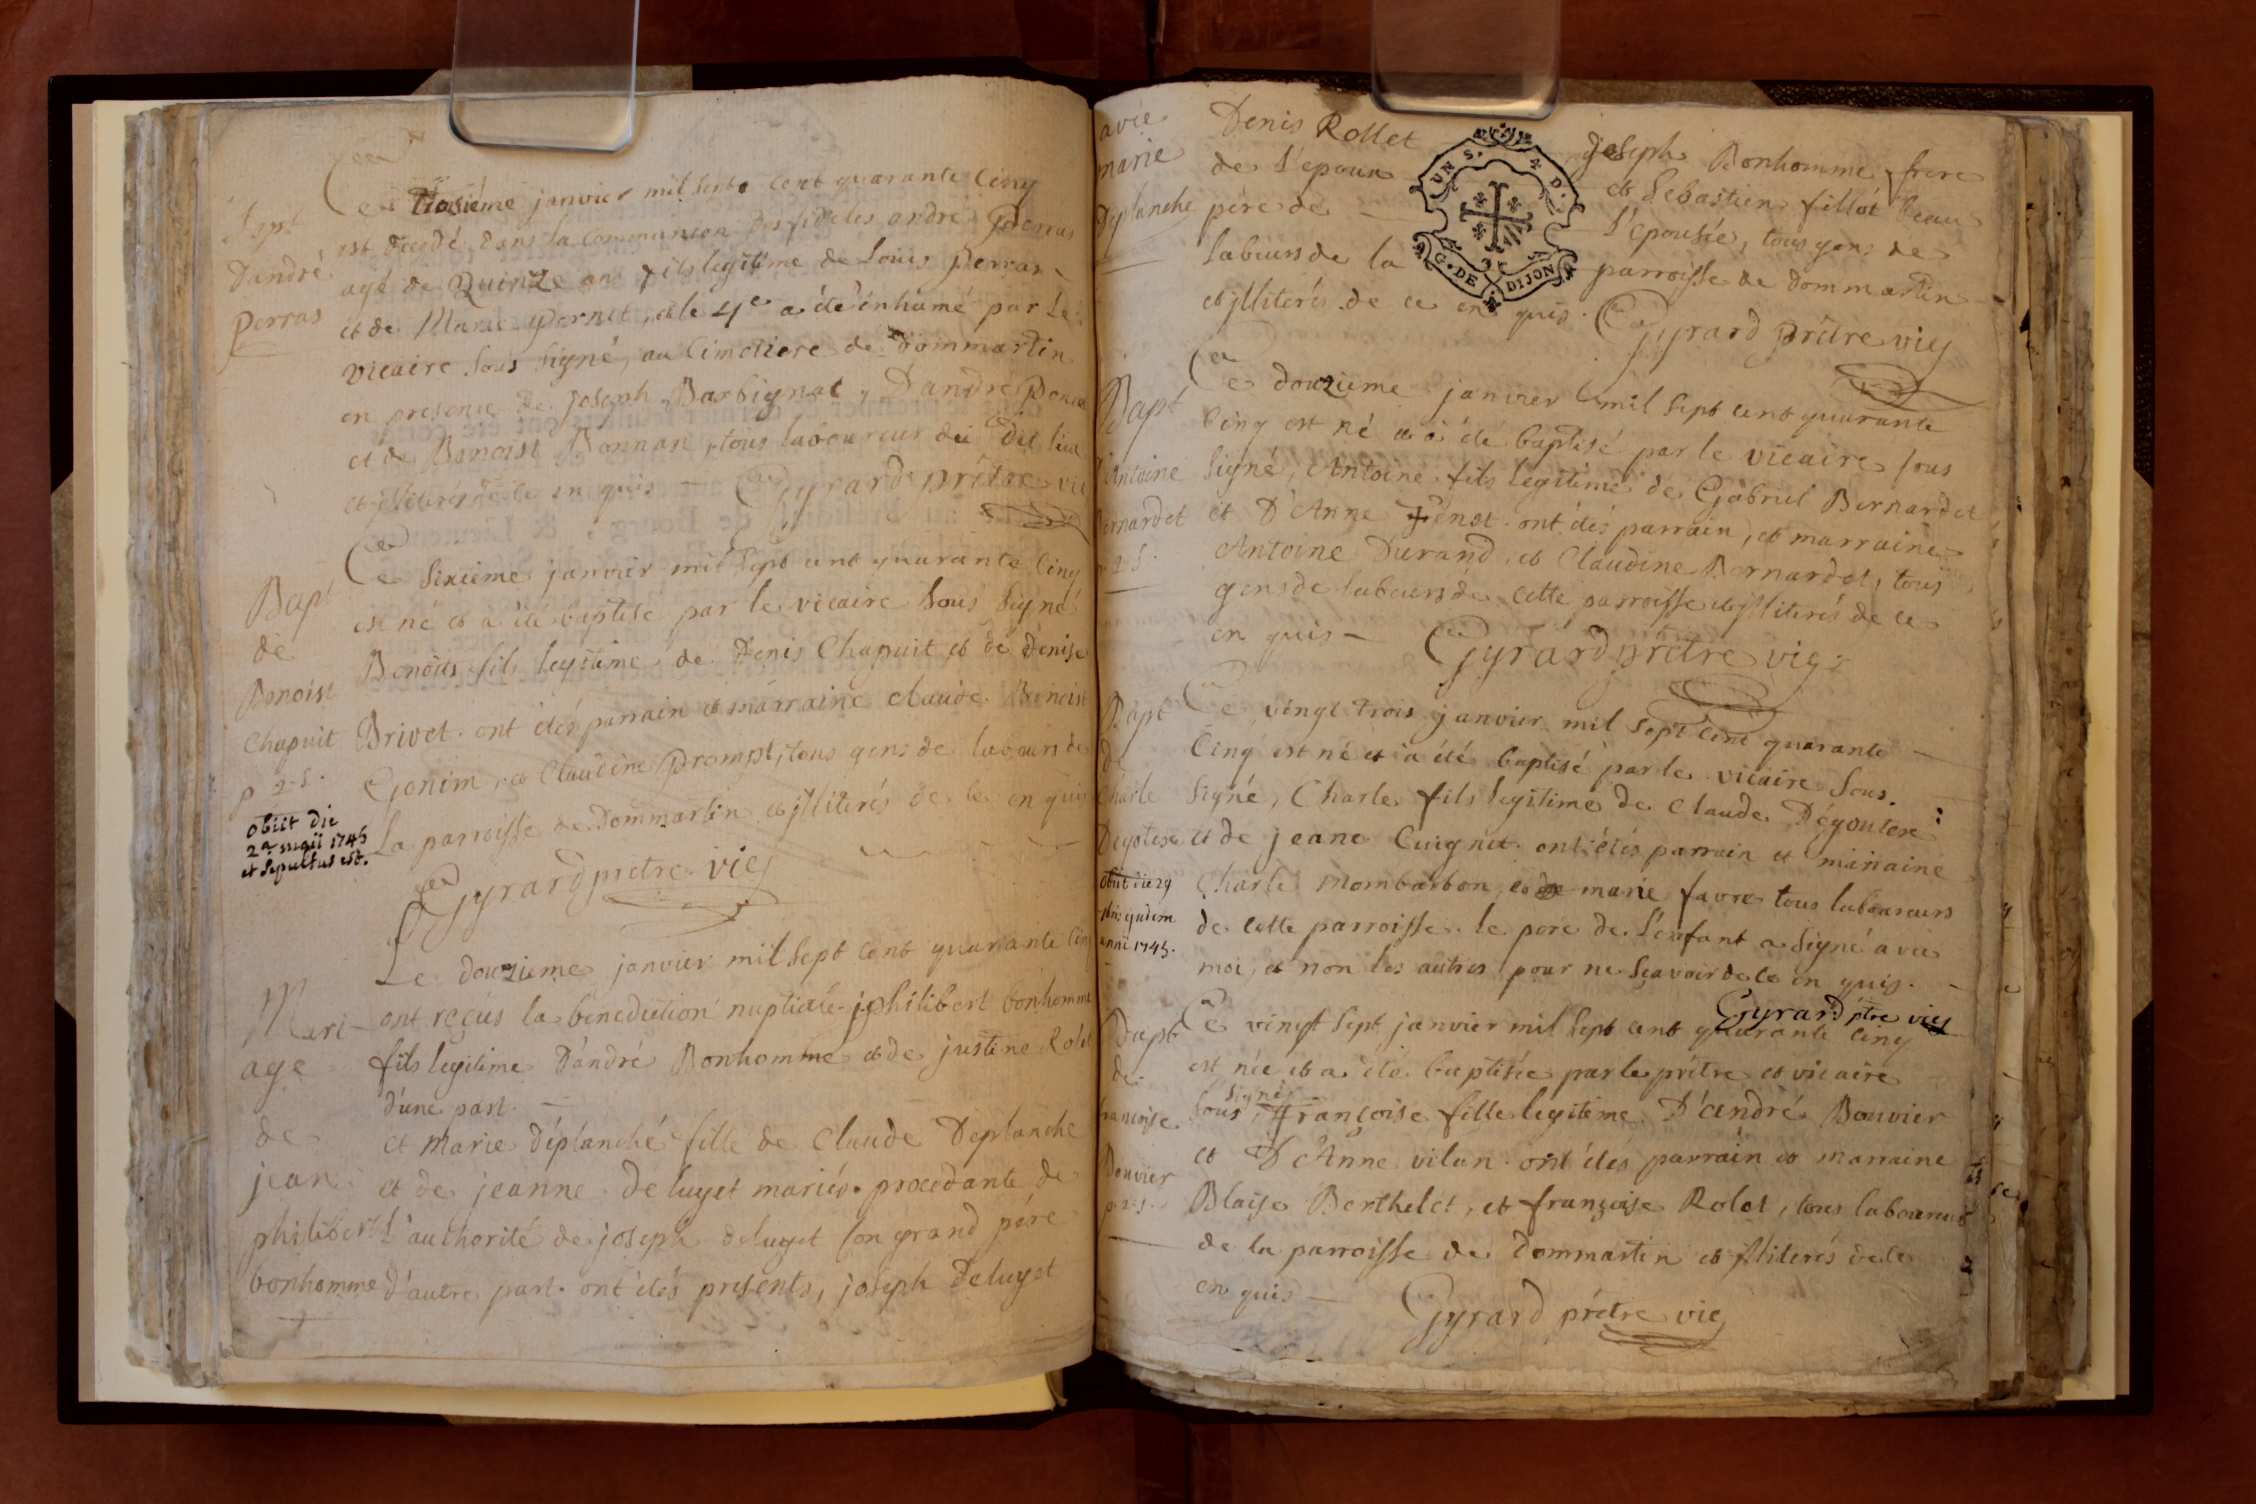 Sept
D'andré
Perras
Ce troisiéme janvier mil sept cent quarante cinq
est decedé dans la Communion des fideles andré Perras
agé de Quinze an fils legitime de Louis Perras
et de Marie Pernet, et le 4e a été enhumé par Le
vicaire sous signé, au Cimetiere de Dommartin
en presence de Joseph Barbignat, D'andré
et de Benoist Bonnan, tous laboureur du dit lieu
et jlliterés de ce en quis — Gyrard prétre vic
Bapt
de
Benoist
Chapuit
p 2. s.
obiit die
2a maii 1745
et sepultus est.
Ce Sixieme janvier mil sept cent quarante Cinq
est né et a été baptisé par le vicaire Sous Signé
Benoits fils legitime de Denis Chapuit et de Denise
Brivet. ont étés parrain et marraine claude Benoist
Gonim, et Claudine Prompt, tous gens de labours de
La parroisse de Dommartin et jlliterés de ce en quis
Gyrard prétre vic
Mari-
age
de
jean
philibert
bonhomme
Le douzieme janvier mil sept cent quarante cinq
ont reçus la benediction nuptiale j philibert bonhomme
fils legitime D'andré Bonhomme et de justine Rolet
d'une part. —
et Marie déplanché fille de Claude Deplanche
et de jeanne deluget mariés. procedante de
l'authorité de joseph deluget son grand pére
d'autre part. ont étés presents, joseph Deluget
avec
marie
Deplanche
Denis Rollet joseph Bonhomme frere
de L'epoux et Sebastien fillot beau
pére de L'epousée, tous gens de
labeurs de la parroisse de Dommartin
et jlliterés de ce en quis. Gyrard prêtre vic
UNS. 4 D.
G. DE DIJON
Bapt
Antoine
Bernardet
p 2. s.
Ce douzieme janvier mil sept cent quarante
Cinq est né et a été baptisé par le vicaire sous
Signé, Antoine fils legitime de Gabriel Bernardet
et D'Anne Penot. ont étés parrain, et marraine
Antoine Durand, et Claudine Bernardet, tous
gens de labeurs de cette parroisse et jlliterés de ce
en quis — Gyrard prétre vic
Bapt
de
Charle
Degoutese
obiit die 29
ejusdem
anni 1745.
Ce vingt trois janvier mil sept cent quarante
Cinq est né et a été baptisé par le vicaire Sous.
Signé, Charle fils legitime de Claude Dégoutese
et de jeane Cuignet. ont étés parrain et marraine
Charle Mombarbon, et marie favre tous laboureurs
de cette parroisse. le pere de l'enfant a signé avec
moi, et non les autres pour ne sçavoir de ce en quis.
Gyrard ptre vic
Bapt
de
francoise
Bouvier
p. 2. s.
Ce vingt sept janvier mil sept cent quarante cinq
est née et a été baptisée par le prétre et vicaire
Sous signé, Françoise fille legitime D'andré Bouvier
et D'Anne vilan. ont étés parrain et marraine
Blaise Berthelet, et françoise Rolet, tous laboureurs
de la parroisse de Dommartin et jlliterés de ce
en quis — Gyrard prétre vic